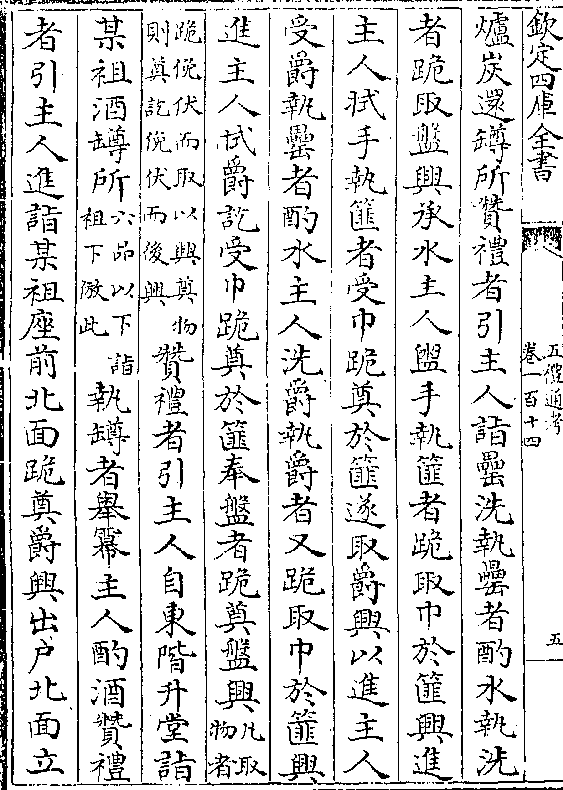 欽定四庫全書
五禮通考
卷一百十四
五
爐炭還罇所贊禮者引主人詣罍洗執罍者酌水執洗
者跪取盤興承水主人盥手執篚者跪取巾於篚興進
主人拭手執篚者受巾跪奠於篚遂取爵興以進主人
受爵執罍者酌水主人洗爵執爵者又跪取巾於篚興
進主人拭爵訖受巾跪奠於篚奉盤者跪奠盤興凡取物者
跪俛伏而取以興奠物則奠訖俛伏而後興贊禮者引主人自東階升堂詣
某祖酒罇所六品以下詣祖下倣此執罇者舉羃主人酌酒贊禮
者引主人進詣某祖座前北面跪奠爵興出户北面立